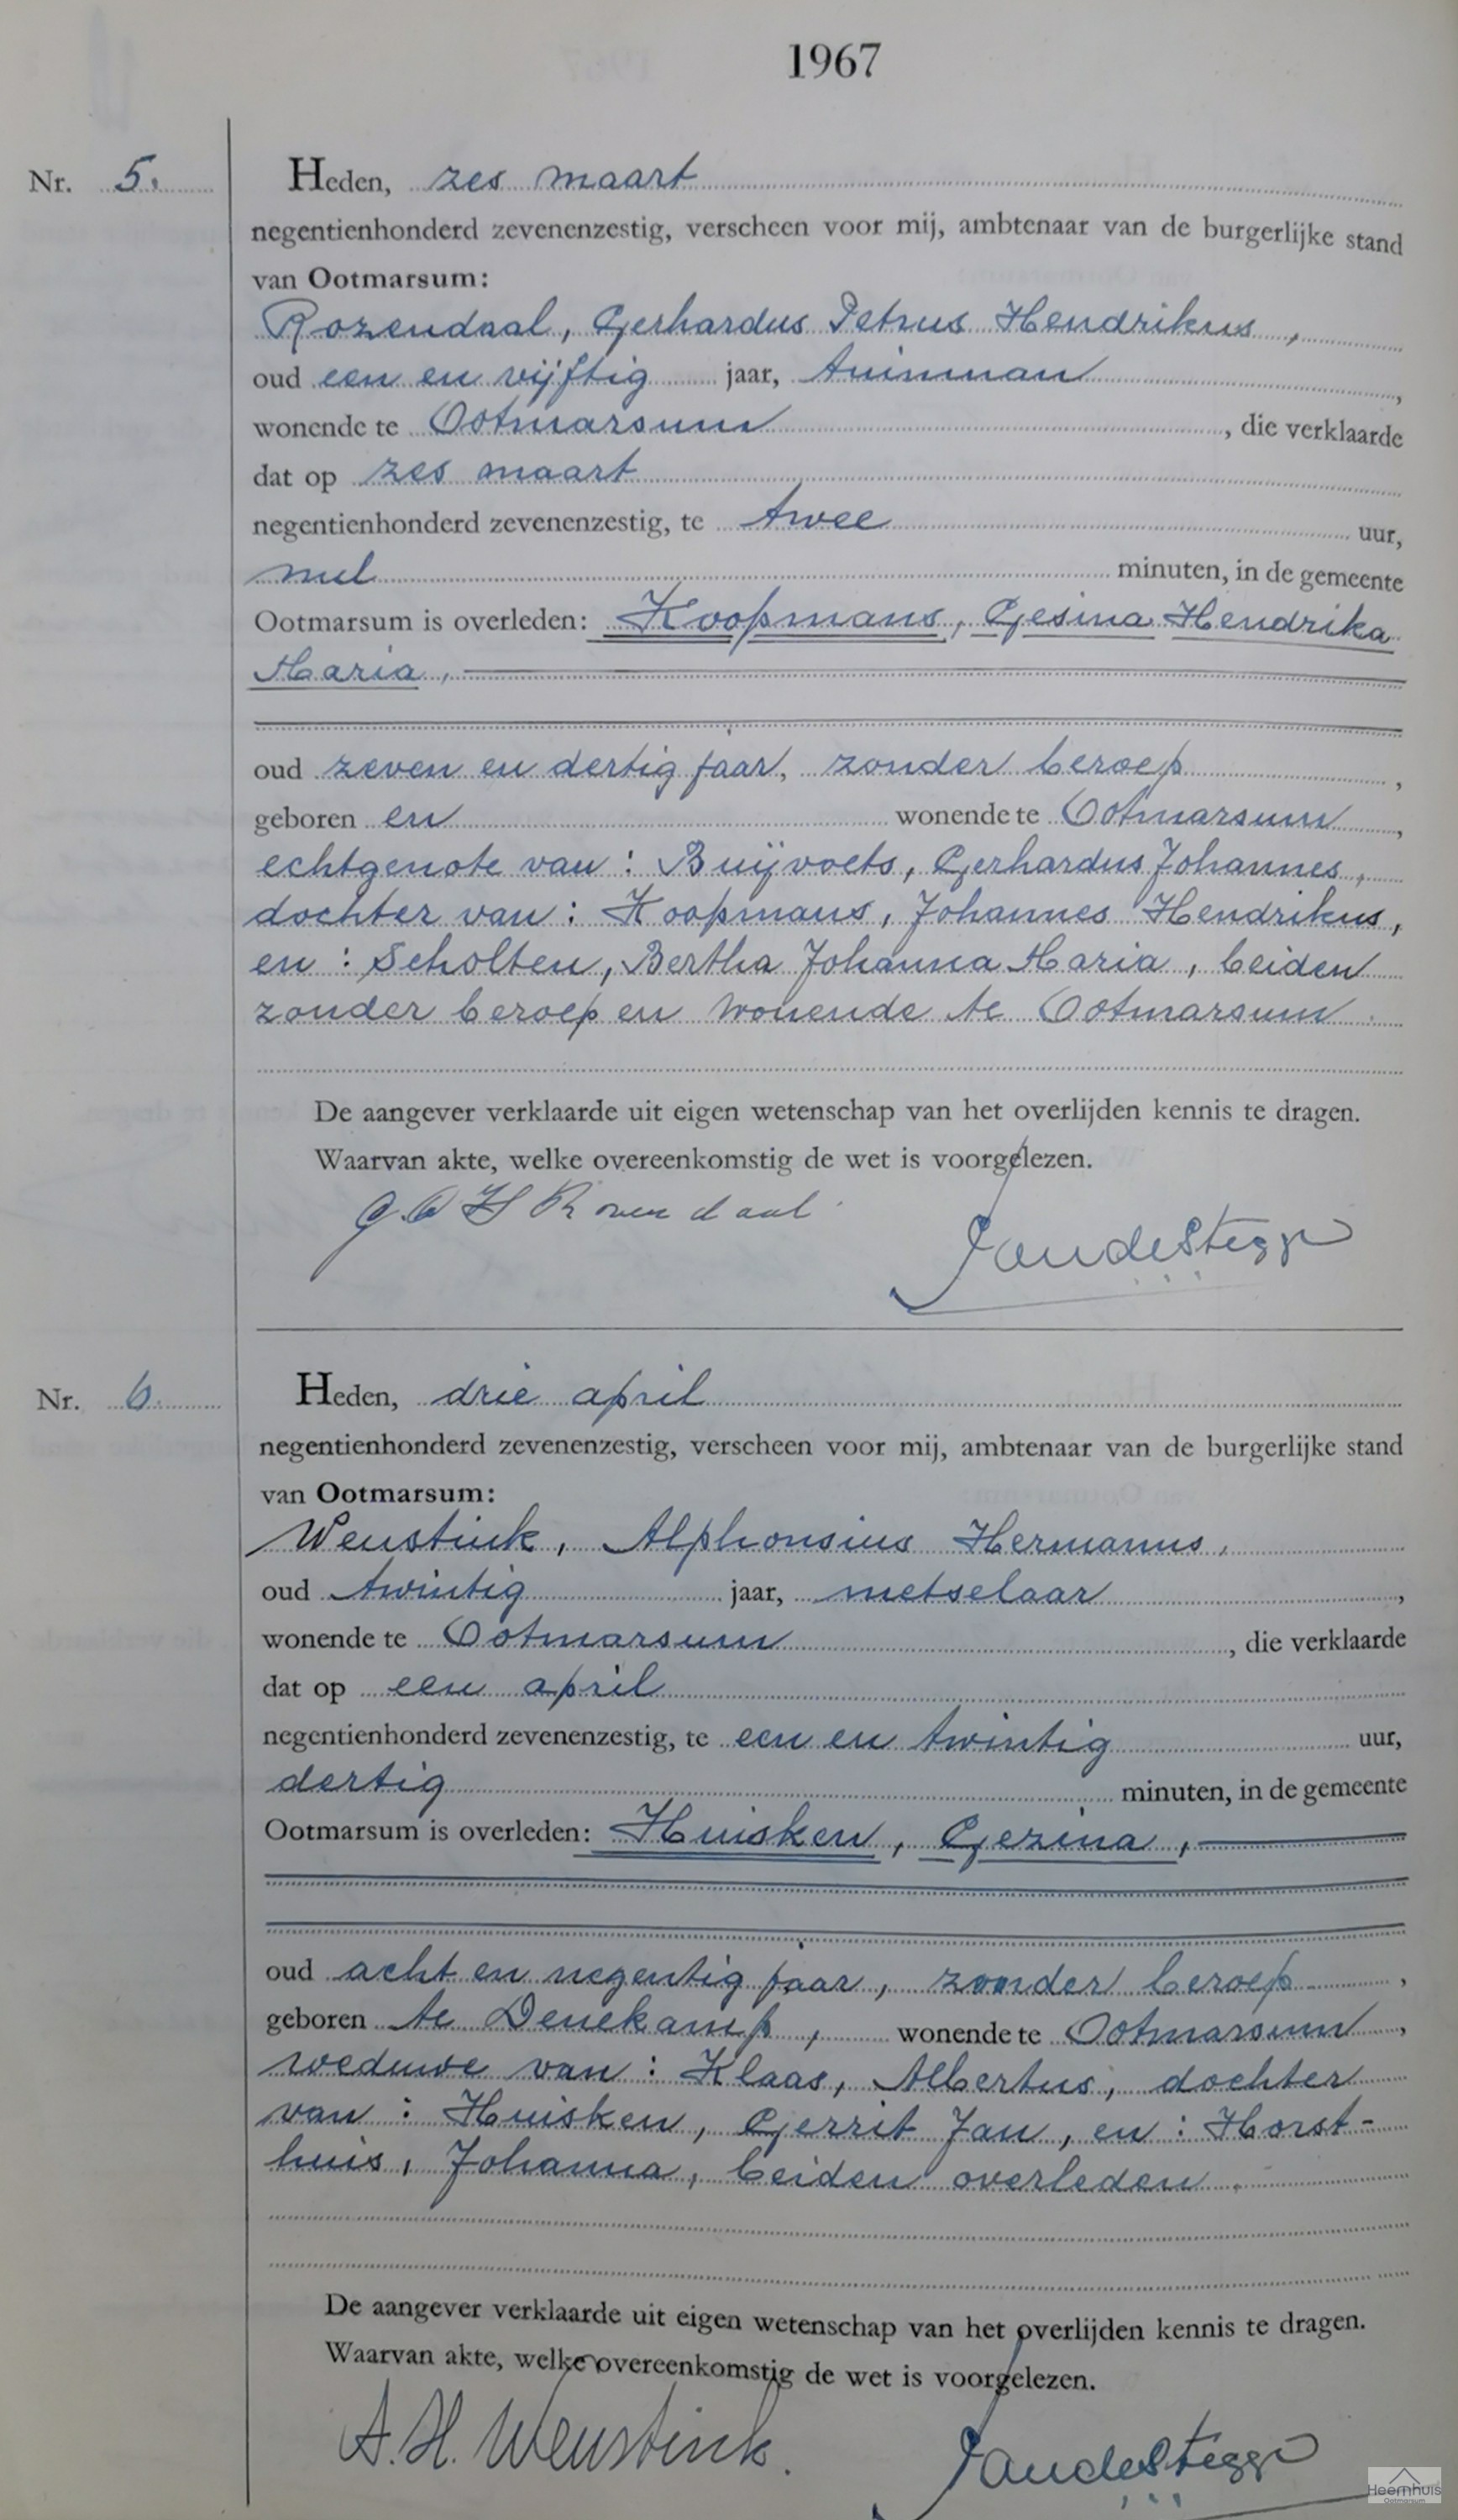 1967
Nr. 5. Heden, zes maart
negentienhonderd zevenenzestig, verscheen voor mij, ambtenaar van de burgerlijke stand
van Ootmarsum:
Rozendaal, Gerhardus Petrus Hendrikus,
oud een en vijftig jaar, tuinman,
wonende te Ootmarsum, die verklaarde
dat op zes maart
negentienhonderd zevenenzestig, te twee uur,
nul minuten, in de gemeente
Ootmarsum is overleden: Koopmans, Gesina Hendrika
Maria,
oud zeven en dertig jaar, zonder beroep,
geboren en wonende te Ootmarsum,
echtgenote van: Buijvoets, Gerhardus Johannes,
dochter van: Koopmans, Johannes Hendrikus,
en: Scholten, Bertha Johanna Maria, beiden
zonder beroep en wonende te Ootmarsum.
De aangever verklaarde uit eigen wetenschap van het overlijden kennis te dragen.
Waarvan akte, welke overeenkomstig de wet is voorgelezen.
Nr. 6. Heden, drie april
negentienhonderd zevenenzestig, verscheen voor mij, ambtenaar van de burgerlijke stand
van Ootmarsum:
Wenstink, Alphonsius Hermanus,
oud twintig jaar, metselaar,
wonende te Ootmarsum, die verklaarde
dat op een april
negentienhonderd zevenenzestig, te een en twintig uur,
dertig minuten, in de gemeente
Ootmarsum is overleden: Huisken, Gezina,
oud acht en negentig jaar, zonder beroep,
geboren te Denekamp, wonende te Ootmarsum,
weduwe van: Klaas, Albertus, dochter
van: Huisken, Gerrit Jan, en: Horst-
huis, Johanna, beiden overleden.
De aangever verklaarde uit eigen wetenschap van het overlijden kennis te dragen.
Waarvan akte, welke overeenkomstig de wet is voorgelezen.
A.H. Wenstink.
Heemhuis
Ootmarsum